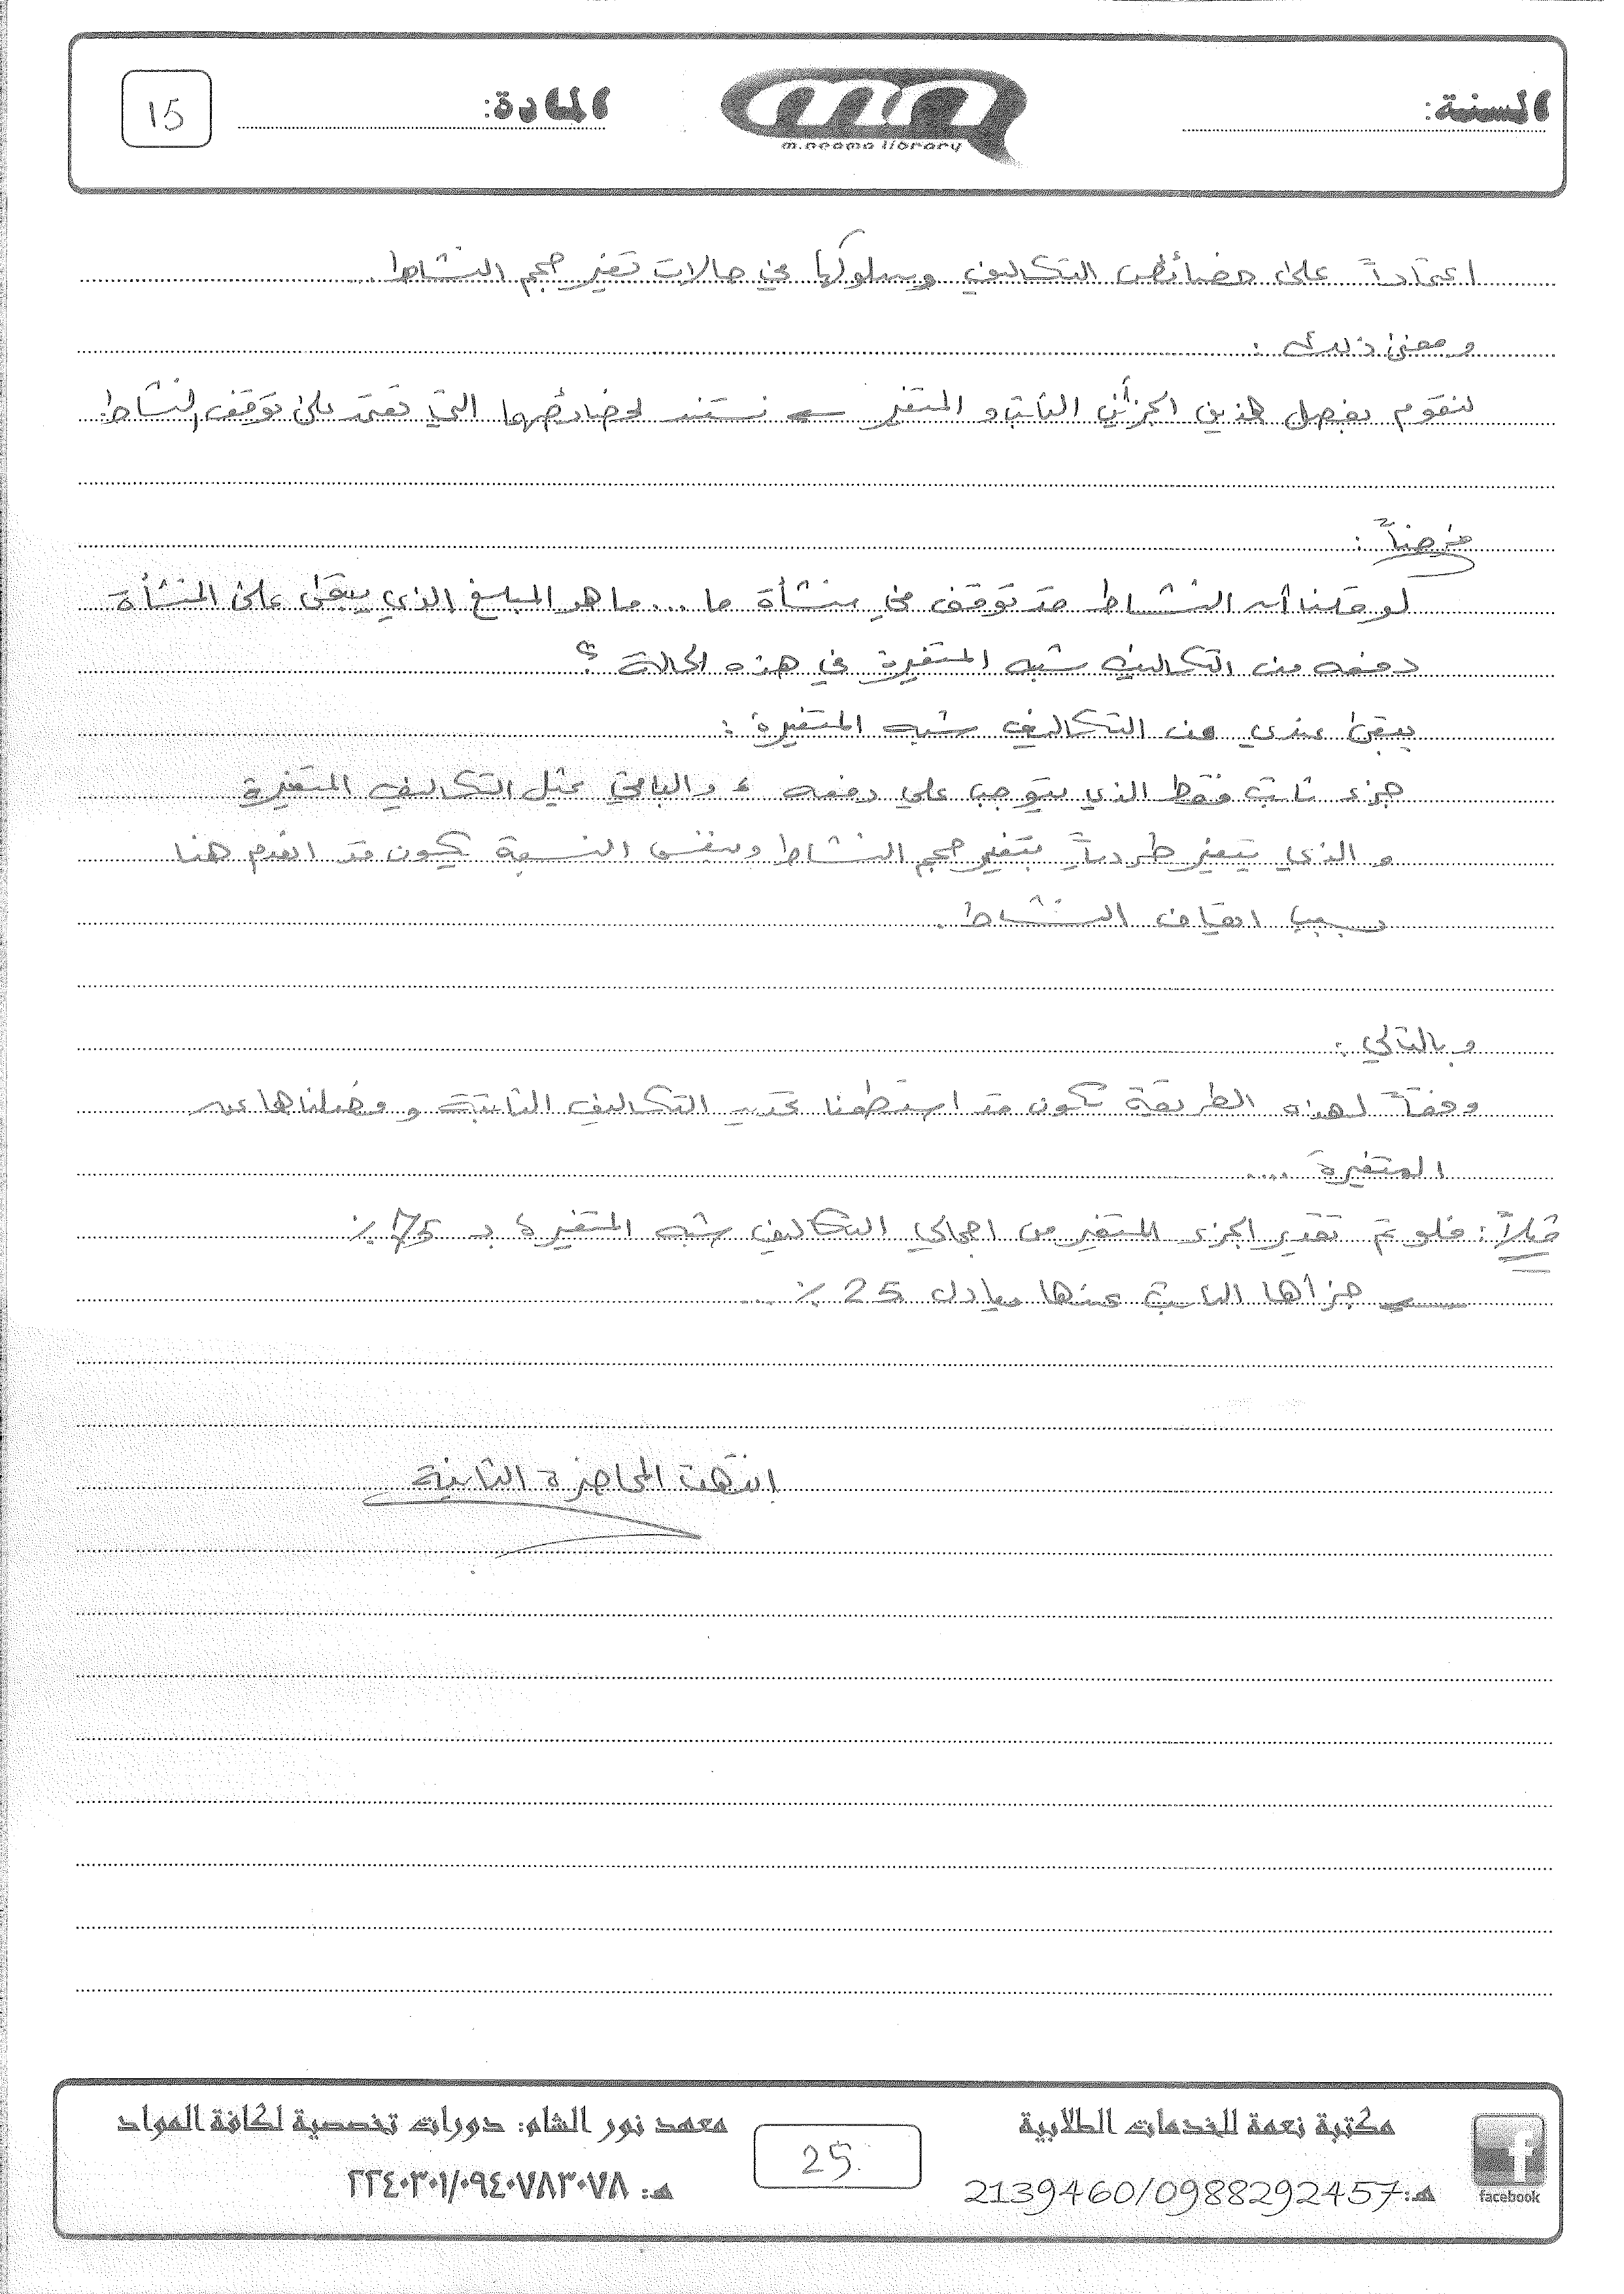 السنة:
m.neama library
المادة:
15
اعتماداً على خصائص التكاليف وسلوكها في حالات تغير حجم النشاط..
ومعنى ذلك:
لنقوم بفصل هذين الجزأين الثابت و المتغير نستند لخصائصها التي تعتمد على توقف النشاط.
فرضناً:
لو قلنا أن النشاط قد توقف في منشأة ما ... ما هو المبلغ الذي يبقى على المنشأة
دفعه من التكاليف شبه المتغيرة في هذه الحالة ؟
يبقى عندي من التكاليف شبه المتغيرة:
جزء ثابت فقط الذي يتوجب علي دفعه ، والباقي يمثل التكاليف المتغيرة
و الذي يتغير طرداً بتغير حجم النشاط وبنفس النسبة يكون قد انعدم هنا
بسبب ايقاف النشاط.
وبالتالي:
وفقاً لهذه الطريقة نكون قد استطعنا تحديد التكاليف الثابتة و فصلناها عن
المتغيرة ....
مثلاً: فلو تم تقدير الجزء المتغير من اجمالي التكاليف شبه المتغيرة بـ 75 %
جزأها الثابت عندها يعادل 25 % ..
انتهت المحاضرة الثانية
facebook
مكتبة نعمة للخدمات الطلابية
هـ: 2139460/0988292457
25.
معهد نور الشام: دورات تخصصية لكافة المواد
هـ: ٢٢٤٠٣٠١/٠٩٤٠٧٨٣٠٧٨